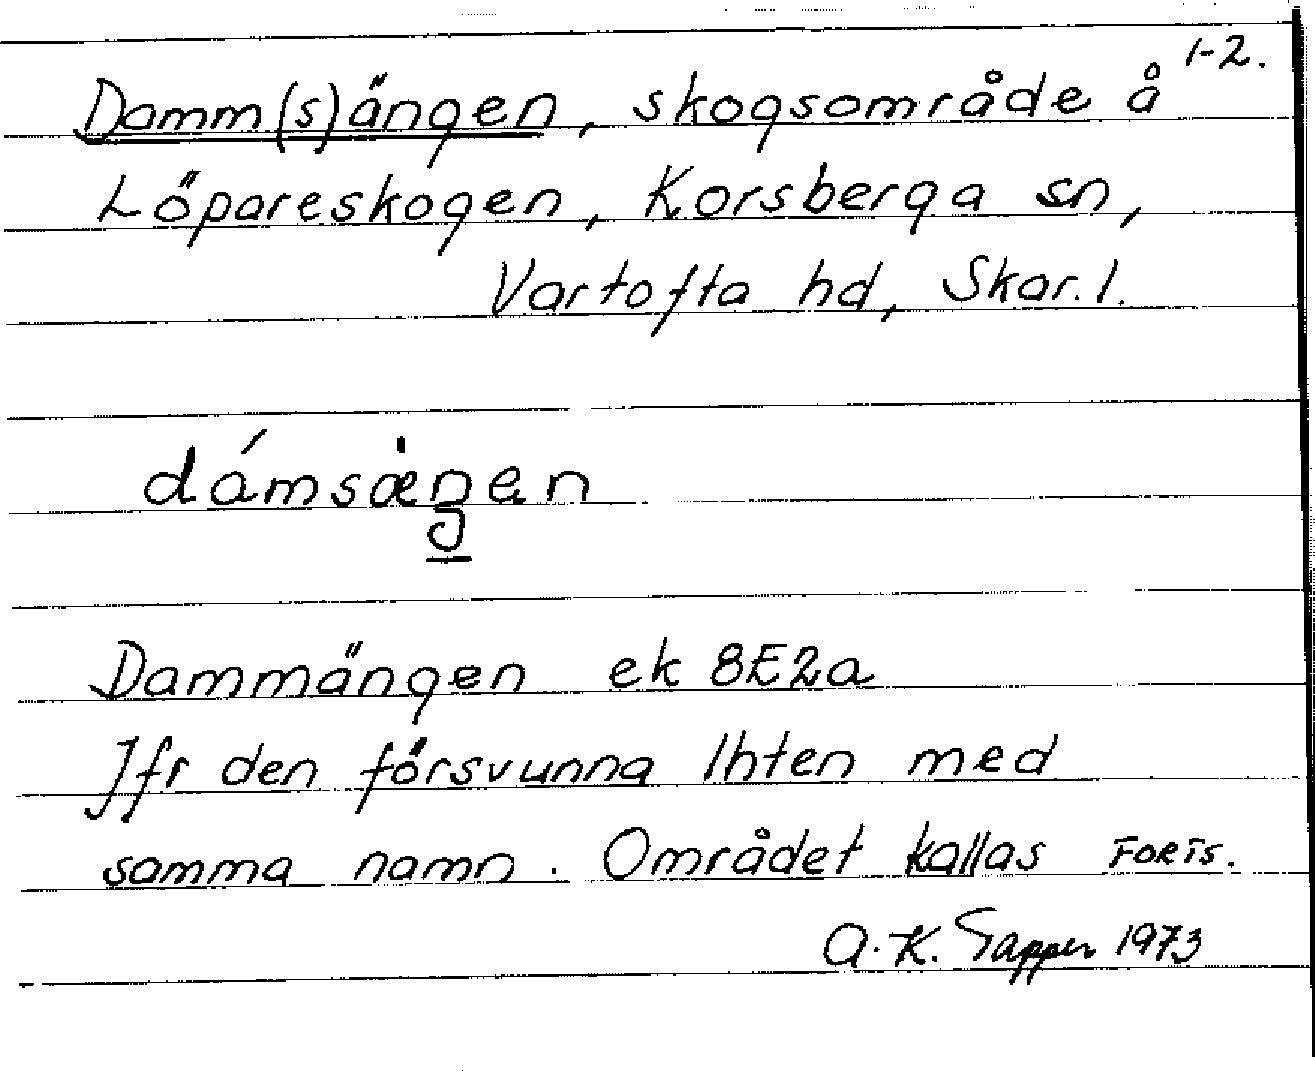 1-2.
Damm(s)ängen, skogsområde å
Löpareskogen, Korsberga sn,
Vartofta hd, Skar. l.
Dammängen ek 8E2a
Jfr den försvunna lhten med
samma namn. Området kallas FORTS.
A. K. Tapper 1973